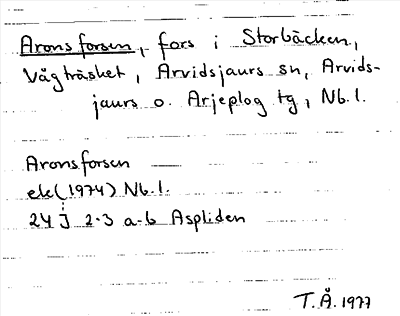 Aronsforsen, fors i Storbäcken,
Vågträsket, Arvidsjaurs sn, Arvids-
jaurs o. Arjeplog tg, Nb. l.
Aronsforsen
ek (1974) Nb. l.
24 j 2-3 a-b Aspliden
T.Å. 1977